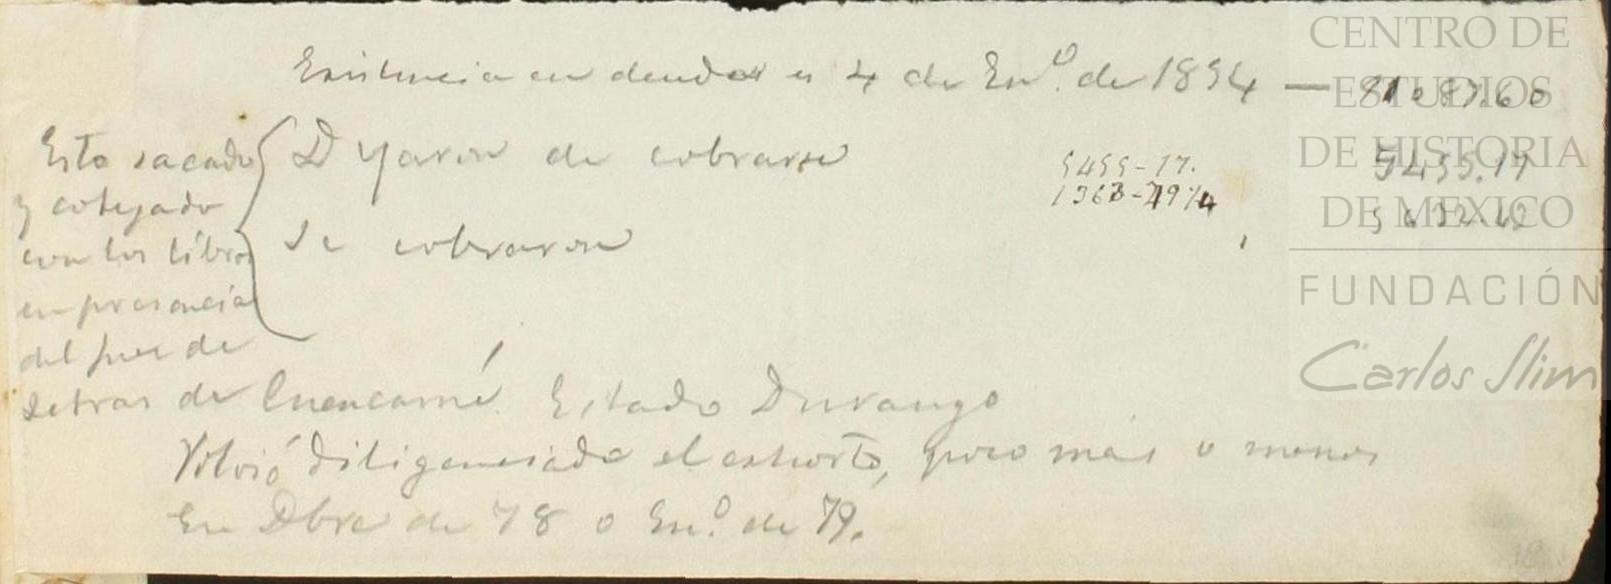 Existencia en deudas en 4 de En.º de 1854 —
Esto sacado
y cotejado
con los libros
en presencia
del juez de
Letras de Cuencamé Estado Durango
Dejaron de cobrarse 5455-17.
1363-79¼
5455.17
Se cobraron
Volvió diligenciado el exhorto, poco más o menos
En Dbre de 78 o En.º de 79.
CENTRO DE
ESTUDIOS
DE HISTORIA
DE MEXICO
FUNDACIÓN
Carlos Slim